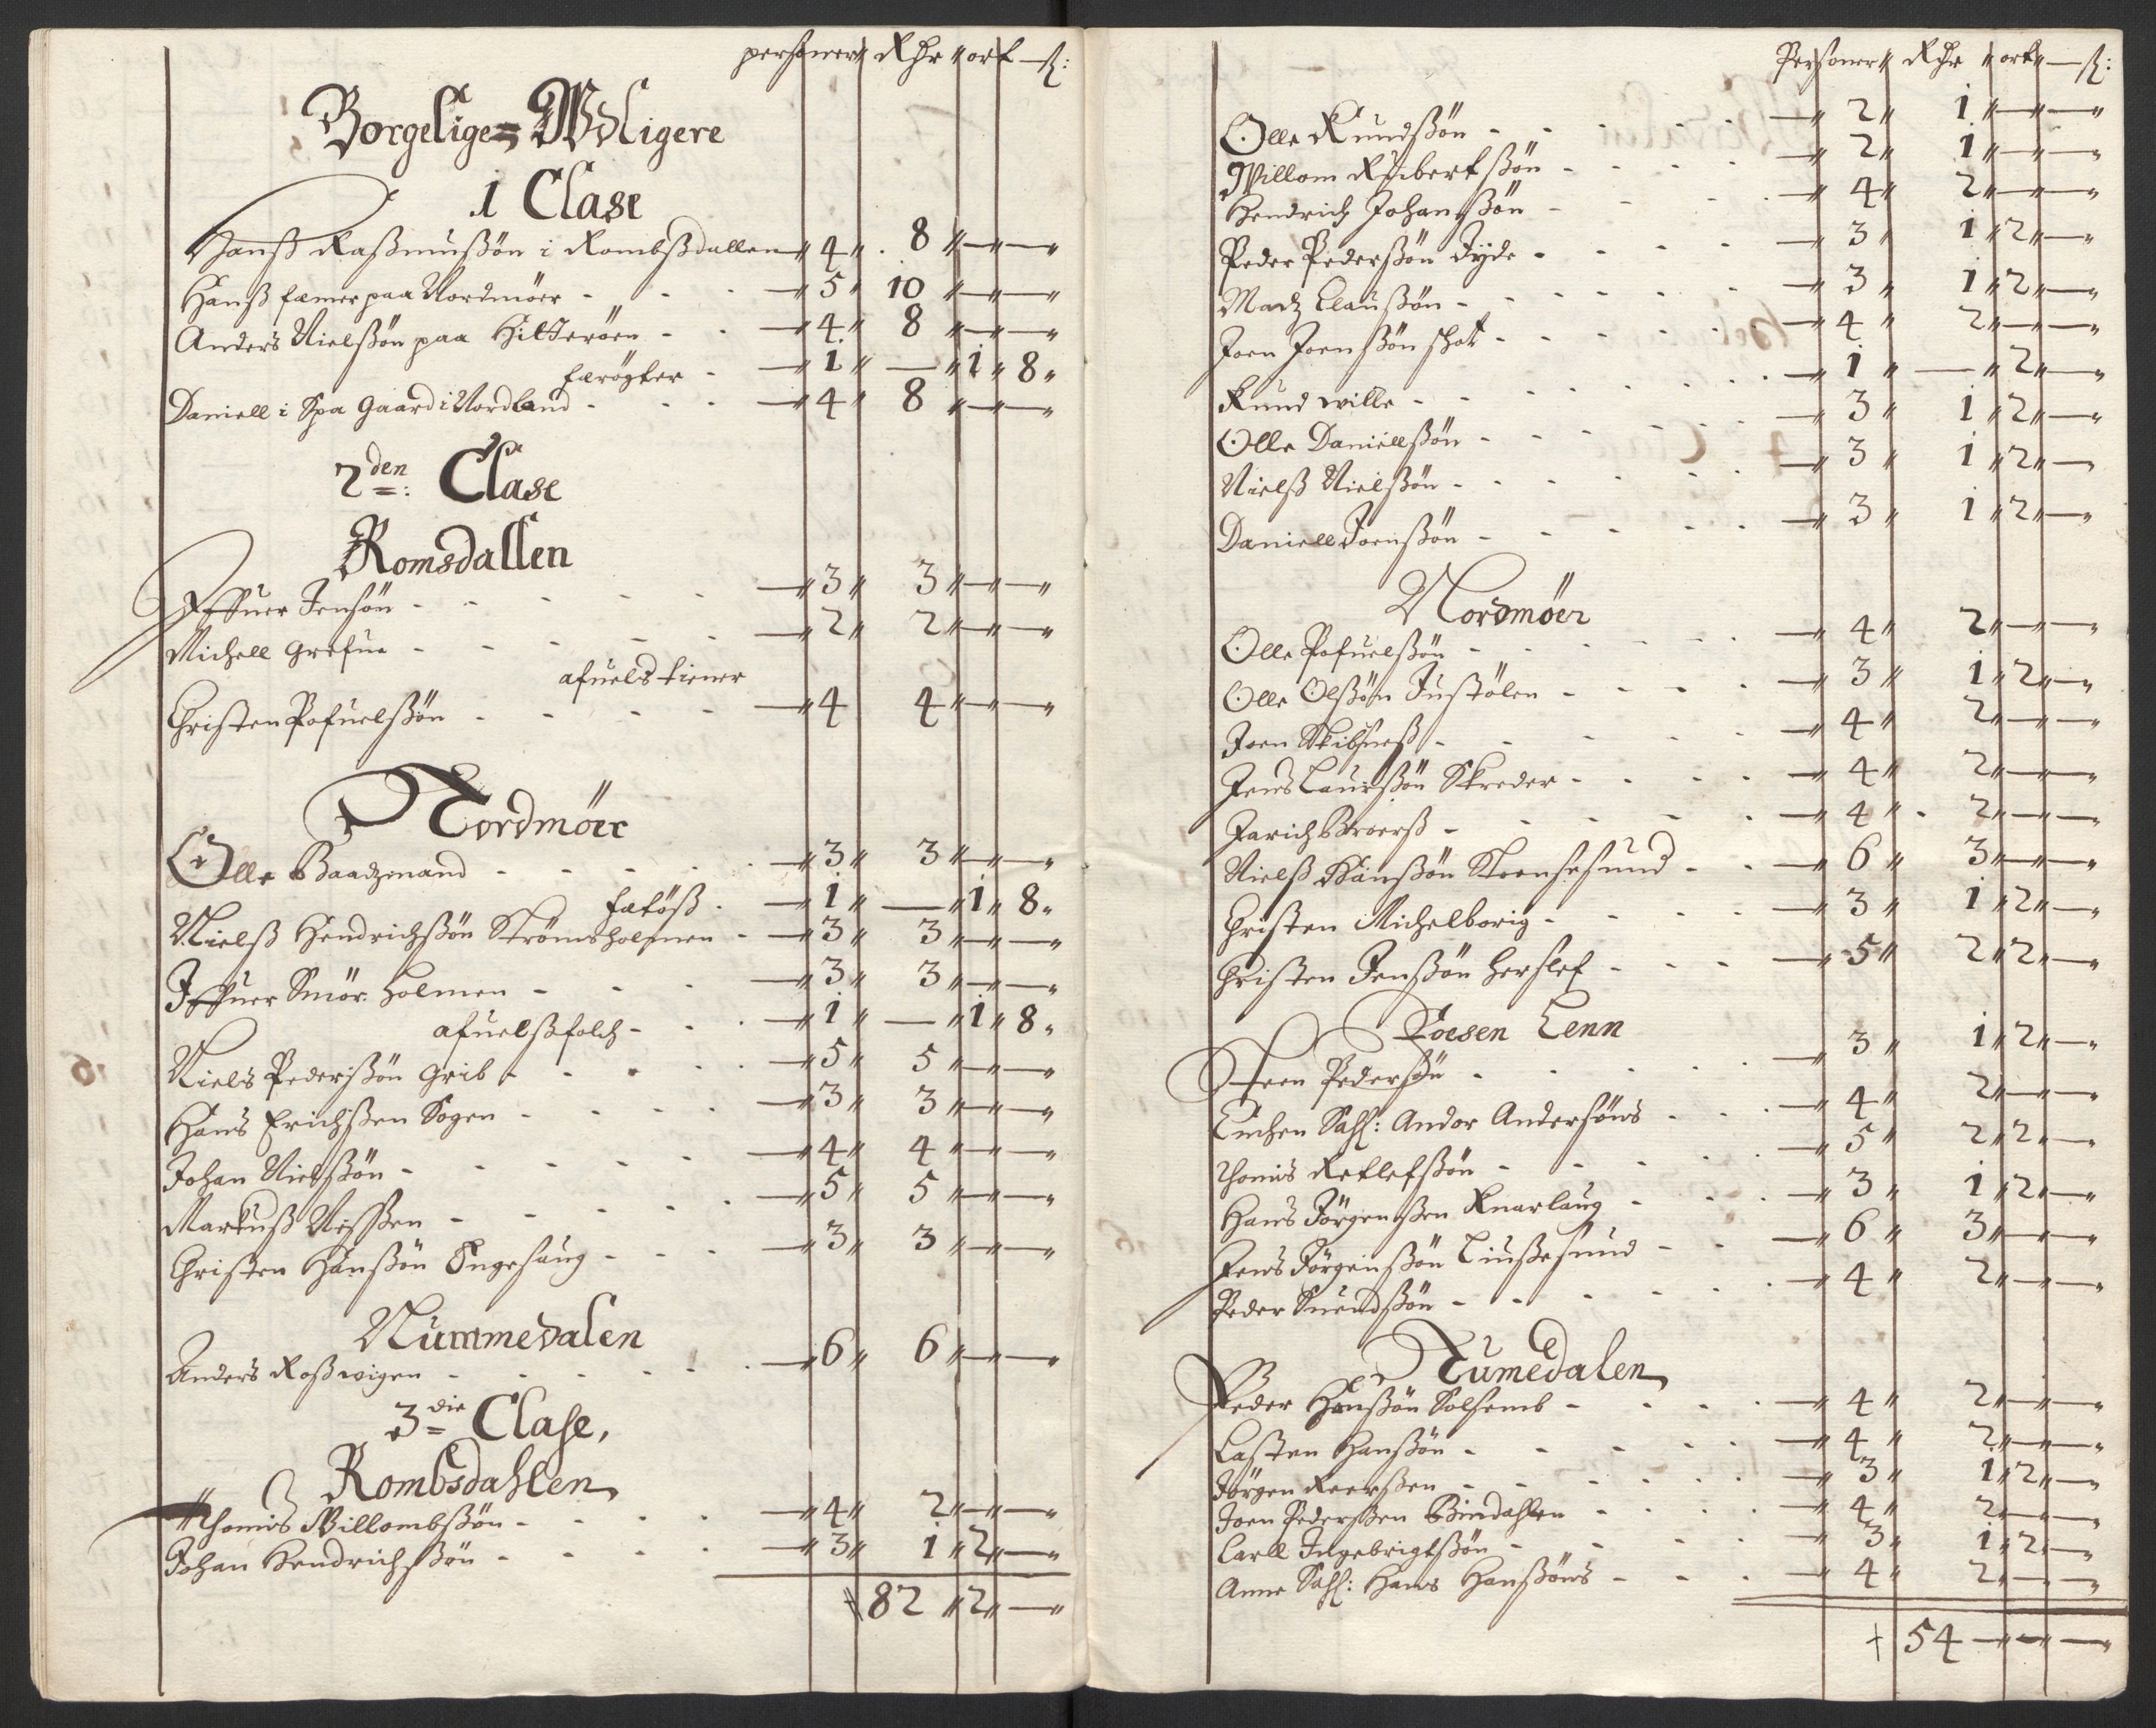 personer Rdr ort ß:
Borgelige Wdligere
1 Clase
Hanß Raßmußøn i Rombßdallen 4 8 — —
Hanß famer paa Nordmøer - - - 5 10 — —
Anders Nielßøn paa Hitterøen - - 4 8 — —
færøgter - 1 — 1 8
Daniell i Spa Gaard i Nordland - - - 4 8 — —
2den: Clase
Romsdallen
Iffuer Jensøn - - - - - 3 3 — —
Michell Grefue - - - - - 2 2 — —
afuels tiener
Christen Pofuelßøn - - - - 4 4 — —
Nordmöer
Olle Baadzmand - - - - - 3 3 — —
fætöß - 1 — 1 8
Nielß Hendrichßøn Strömsholmen - 3 3 — —
Iffuer Smör holmen - - - 3 3 — —
afuelßfolch - - - 1 — 1 8
Niels Pederßøn Grib - - - - - 5 5 — —
Hans Erichßen Sogen - - - - 3 3 — —
Johan Nielßøn - - - - - 4 4 — —
Markuß Nißßen - - - - - 5 5 — —
Christen Hanßøn Ongesaug - - - 3 3 — —
Nummedalen
Anders Roßwigen - - - - - 6 6 — —
3die Clase,
Rombsdahlen
Thomis Willombßøn - - - - 4 2 — —
Johan Hendrichßøn - - - - 3 1 2 —
82 2 —
Personer Rdr ort — ß:
Olle Knudßøn - - - - - 2 1 — —
Willom Ribertßøn - - - - 2 1 — —
Hendrich Johanßøn - - - - 4 2 — —
Peder Pederßøn Jyde - - - - 3 1 2 —
Madz Claußøn - - - - - - 3 1 2 —
Joen Joenßøn skot - - - - - 4 2 — —
Knud wille - - - - - - 1 — 2 —
Olle Daniellßøn - - - - - - 3 1 2 —
Nielß Nielßøn - - - - - - 3 1 2 —
Daniell Joenßøn - - - - - 3 1 2 —
Nordmöer
Olle Pofuelßøn - - - - - 4 2 — —
Olle Olßøn Justölen - - - - 3 1 2 —
Joen Skibsneß - - - - - 4 2 — —
Jens Laurßøn Skreder - - - - 4 2 — —
Jarich Broerß - - - - - - 4 2 — —
Nielß Hanßøn Stoensesund - - 6 3 — —
Christen Michelborig - - - - 3 1 2 —
Christen Jenßøn Herslef - - - 5 2 2 —
Foesen Lenn
Steen Pedersøn - - - - - 3 1 2 —
Tuchen Sahl: Andor Andersøns - - - 4 2 — —
Thomis Ketlefßøn - - - - - 5 2 2 —
Hans Jörgenßen Knarlaug - - - 3 1 2 —
Jens Jörgenßøn Liußesund - - 6 3 — —
Peder Suendßøn - - - - - - 4 2 — —
Numedalen
Peder Hanßøn Solsemb - - - - 4 2 — —
Casten Hanßøn - - - - - 4 2 — —
Jörgen Reerßen - - - - - - 3 1 2 —
Joen Pederßen Bindahlen - - - - 4 2 — —
Carll Ingebrigtßøn - - - - - 3 1 2 —
Anne Sahl: Hans Hanßøns - - - 4 2 — —
54 — — —